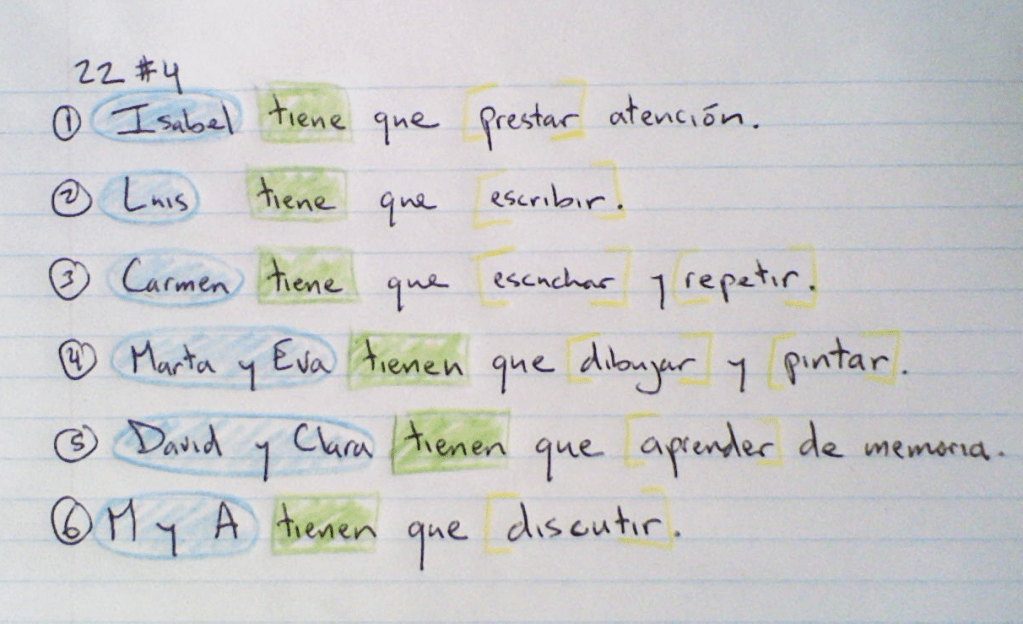 22 #4
① Isabel tiene que prestar atención.
② Luis tiene que escribir.
③ Carmen tiene que escuchar y repetir.
④ Marta y Eva tienen que dibujar y pintar.
⑤ David y Clara tienen que aprender de memoria.
⑥ M y A tienen que discutir.